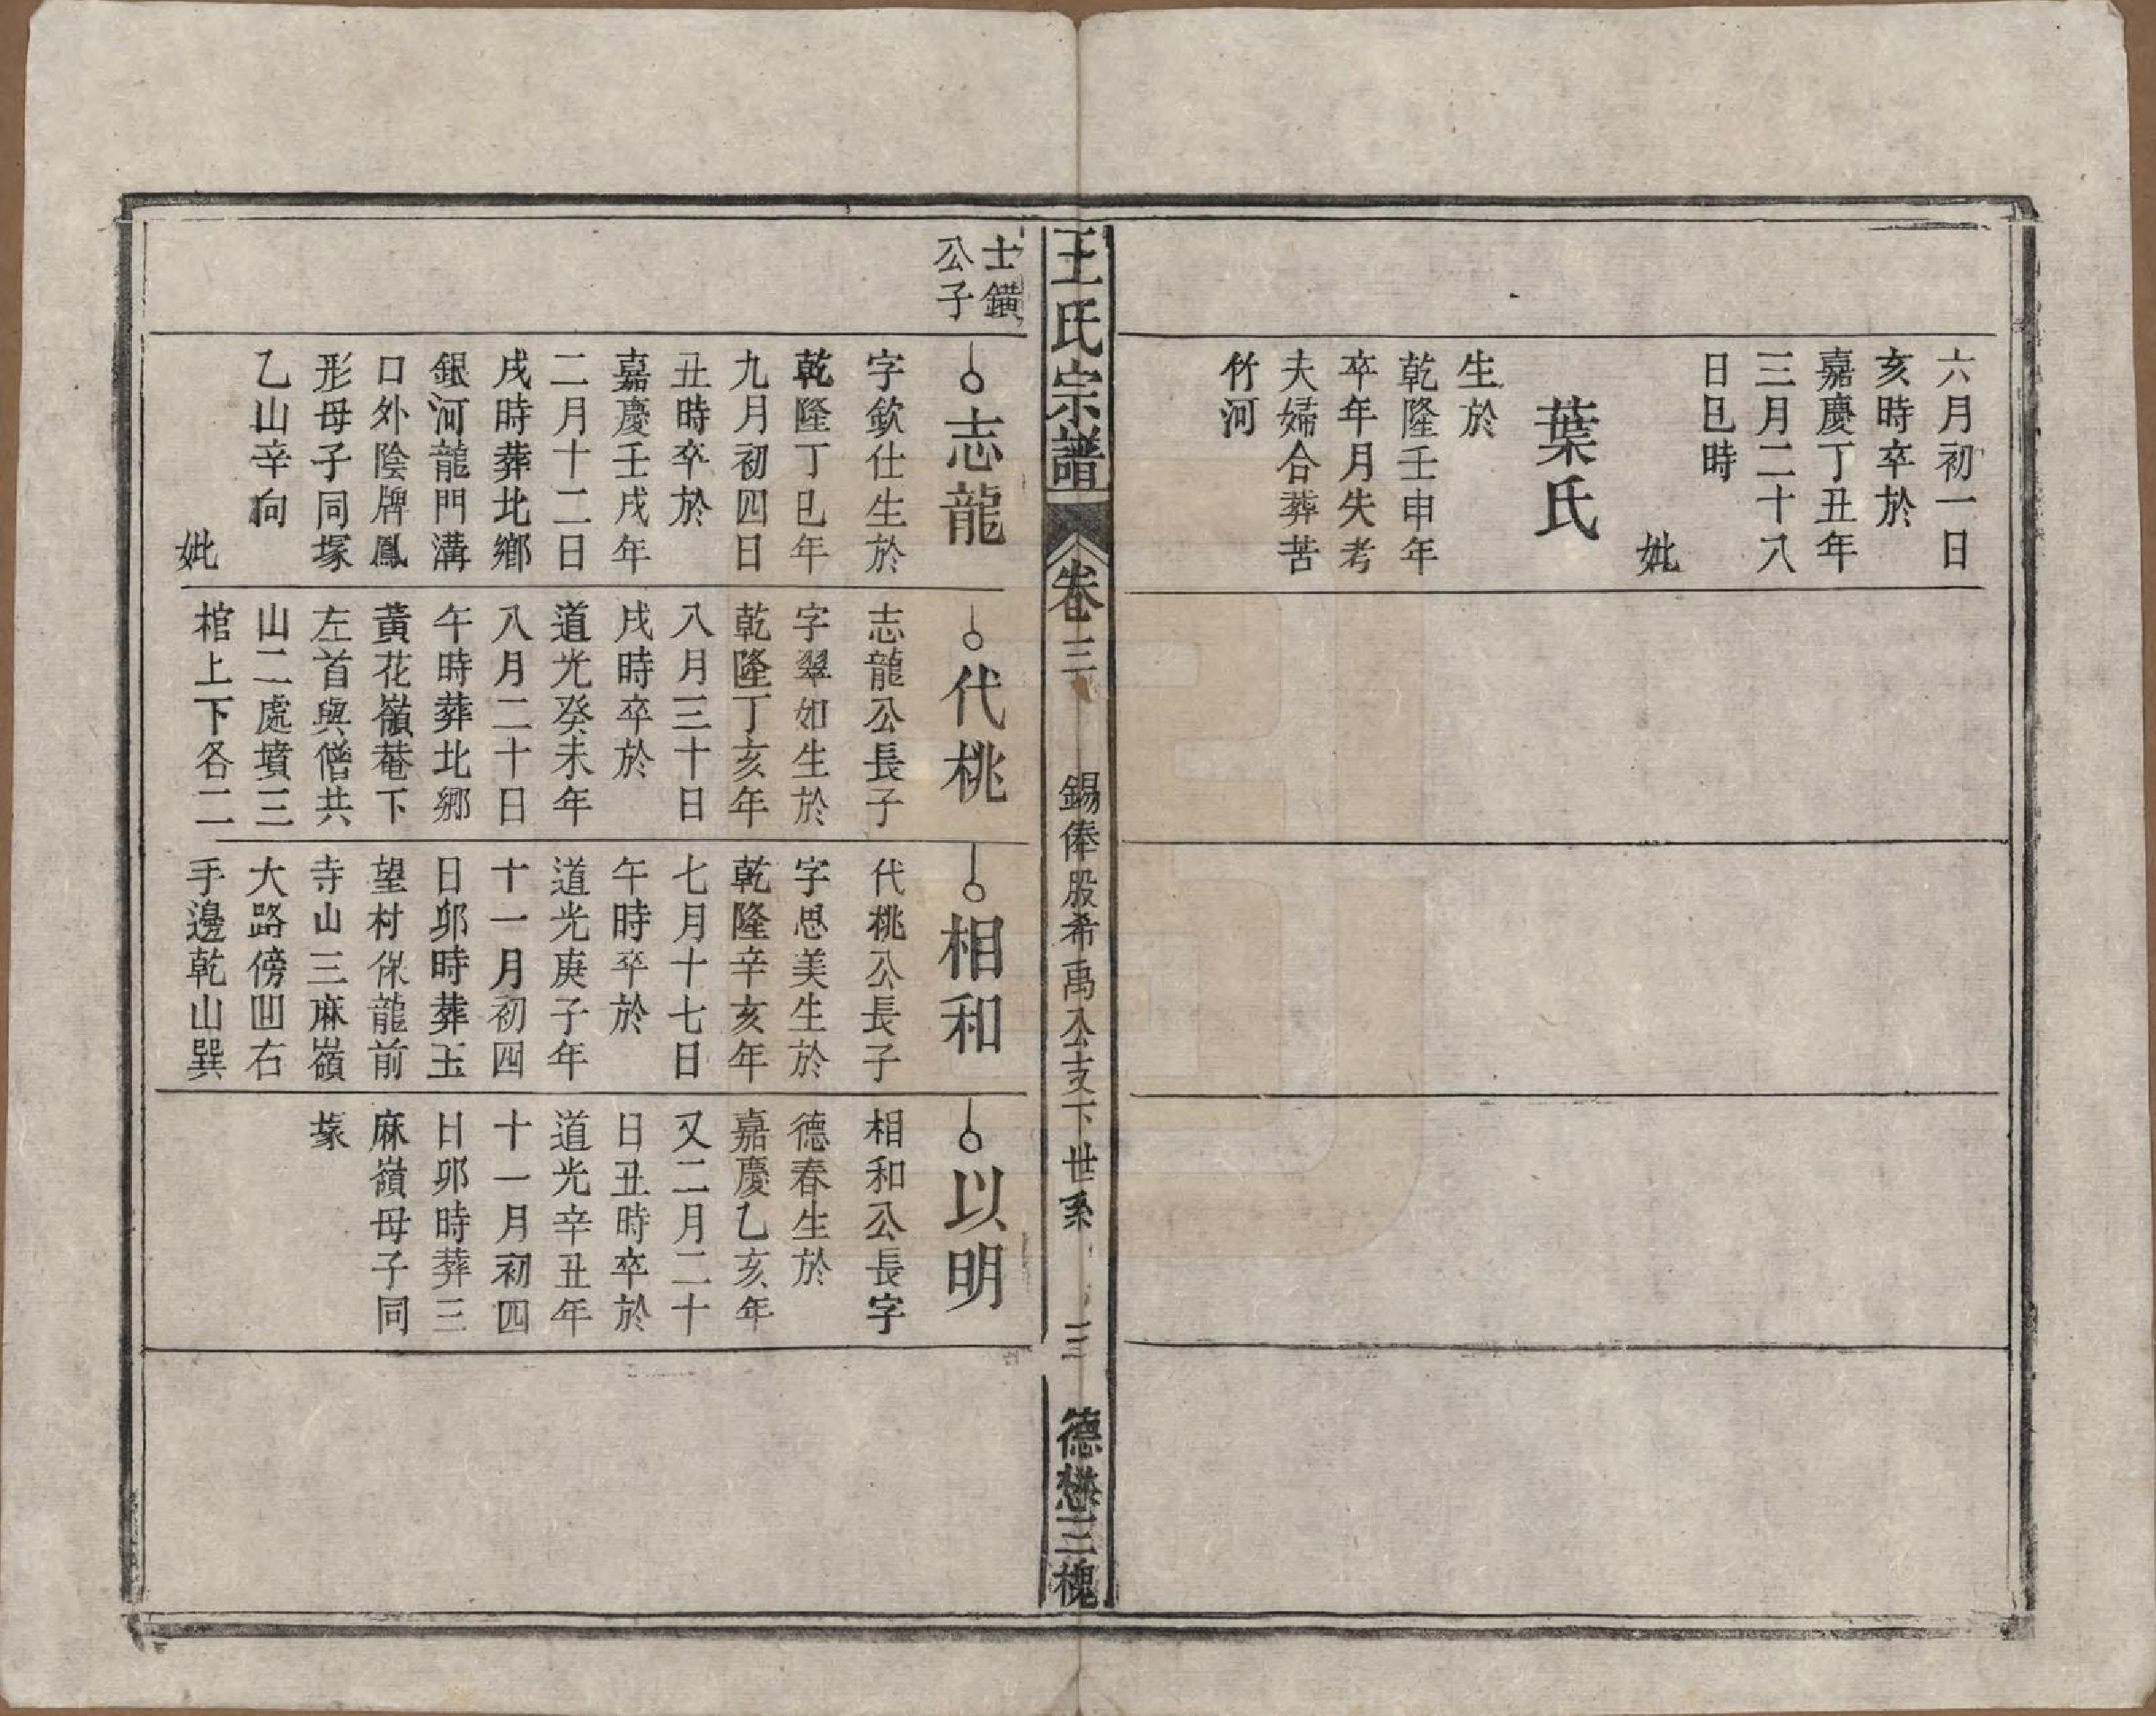 六月初一日
亥時卒於
嘉慶丁丑年
三月二十八
日巳時
妣
葉氏
生於
乾隆壬申年
卒年月失考
夫婦合葬苦
竹河
王氏宗譜
卷三
錫俸股希禹公支下世系
三
德懋三槐
士鐄
公子
志龍
字欽仕生於
乾隆丁巳年
九月初四日
丑時卒於
嘉慶壬戌年
二月十二日
戌時葬北鄉
銀河龍門溝
口外陰牌鳳
形母子同塚
乙山辛向
妣
代桃
志龍公長子
字翠如生於
乾隆丁亥年
八月三十日
戌時卒於
道光癸未年
八月二十日
午時葬北鄉
黃花嶺菴下
左首與僧共
山二處墳三
棺上下各二
相和
代桃公長子
字思美生於
乾隆辛亥年
七月十七日
午時卒於
道光庚子年
十一月初四
日卯時葬玉
望村保龍前
寺山三麻嶺
大路傍凹右
手邊乾山巽
以明
相和公長字
德春生於
嘉慶乙亥年
又二月二十
日丑時卒於
道光辛丑年
十一月初四
日卯時葬三
麻嶺母子同
塚